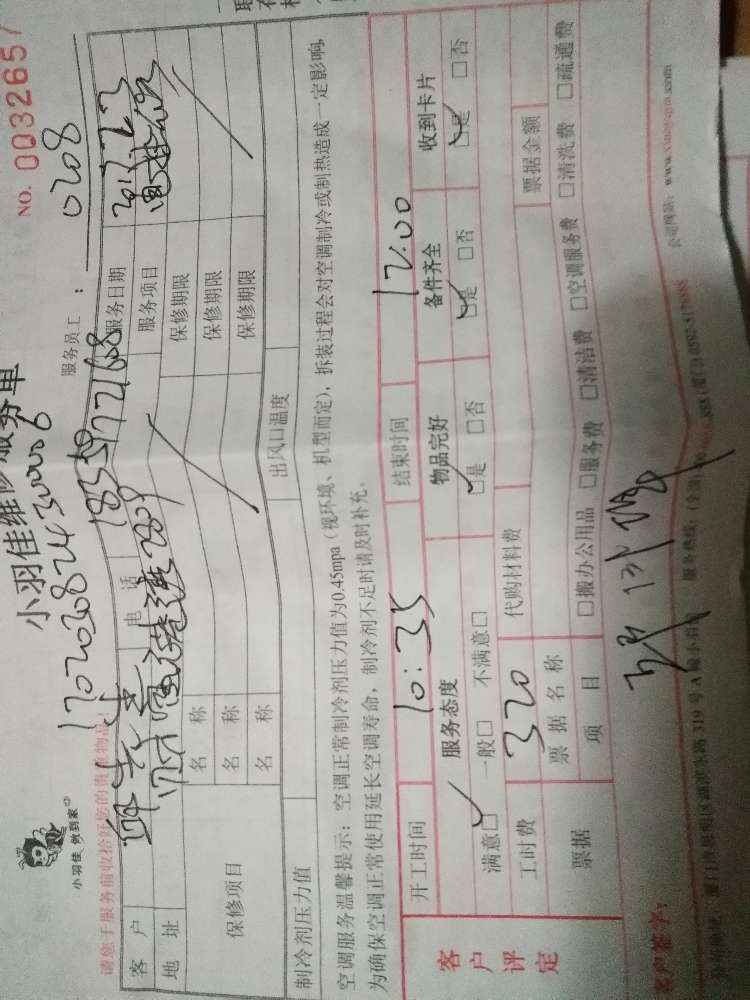 小羽佳维修服务单
NO. 0032657
小羽佳 例到家
1702030824300006
服务员工： 0208
请您于服务前收拾好您的贵重物品！
客户 电话 18359721608 服务日期 2017.2.3
地址 服务项目
保修项目 名称 保修期限
名称 保修期限
名称 保修期限
制冷剂压力值 出风口温度
空调服务温馨提示：空调正常制冷剂压力值为0.45mpa（视环境、机型而定），拆装过程会对空调制冷或制热造成一定影响，
为确保空调正常使用延长空调寿命，制冷剂不足时请及时补充。
客户评定
开工时间 10:35 结束时间 12:00
服务态度 物品完好 备件齐全 收到卡片
满意□ 一般□ 不满意□ □是 □否 □是 □否 □是 □否
工时费 320 代购材料费
票据 票据名称 票据金额
项目 □搬办公用品 □服务费 □清洁费 □空调服务费 □清洗费 □疏通费
客户签字：
319号A幢
服务热线：
公司网站：